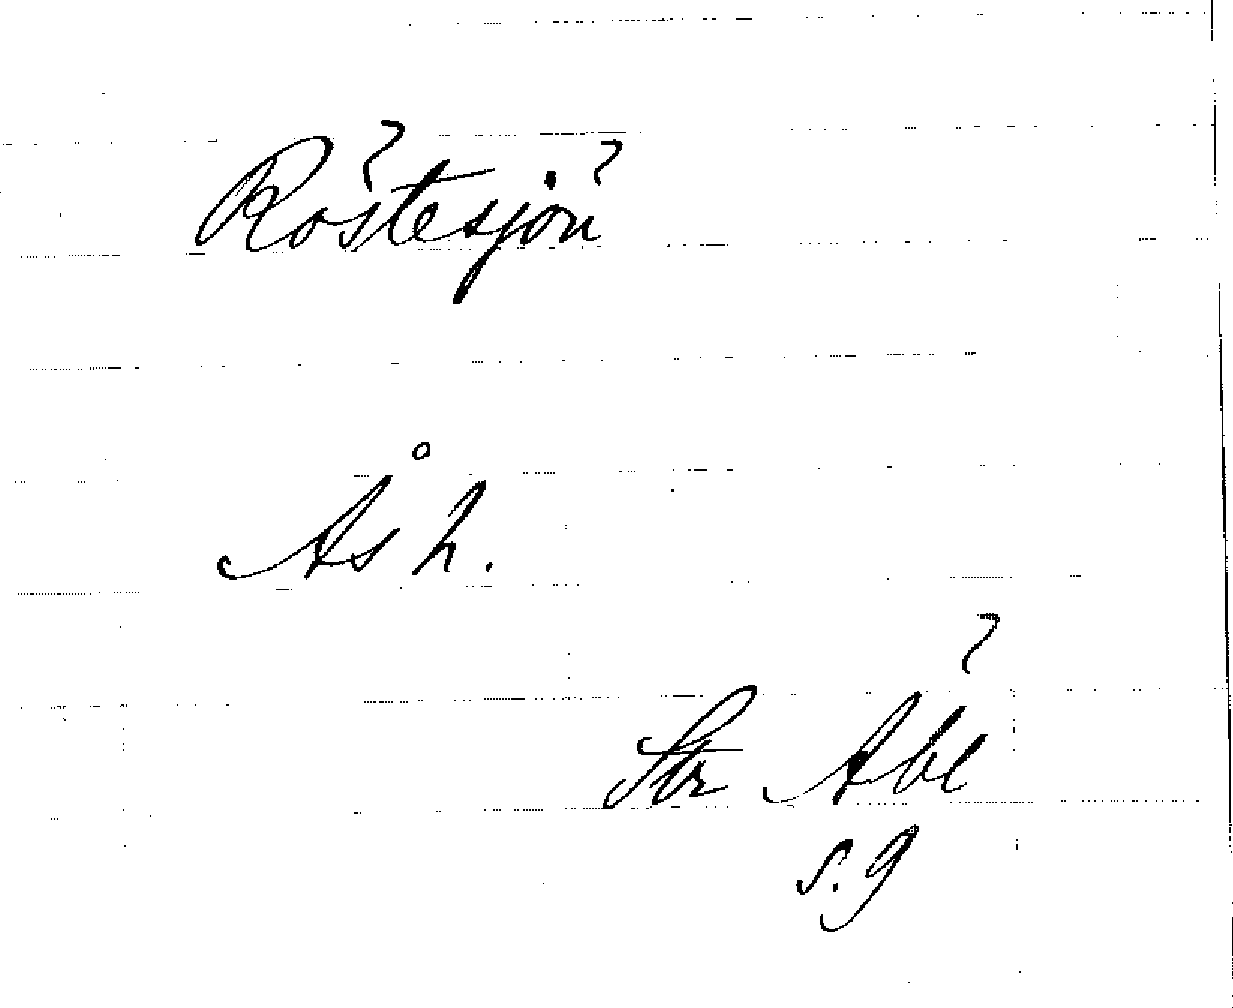 Röstesjön
Ås h.
Str Abl
s. 9